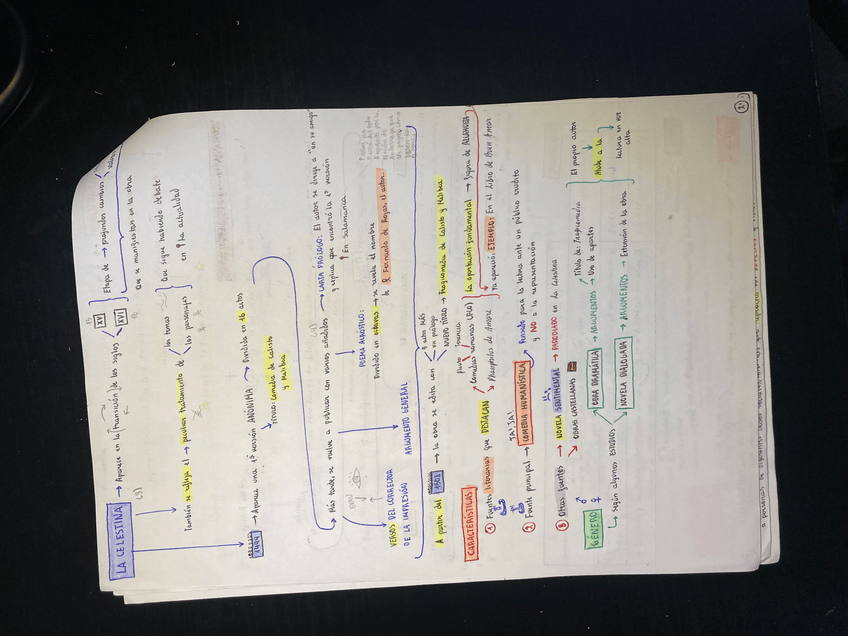 LA CELESTINA → Aparece en la transición de los siglos XV XVI } Etapa de → profundos cambios
Que se manifiestan en la obra
También se refleja el → peculiar tratamiento de los temas los personajes } Que sigue habiendo debate en la actualidad
→ Aparece una 1ª versión ANÓNIMA → Dividido en 16 actos
→ TÍTULO: Comedia de Calisto y Melibea
→ Más tarde, se vuelve a publicar con varios añadidos → CARTA PRÓLOGO: El autor se dirige a "un su amigo"
y explica que encontró la 1ª versión
↑ En Salamanca
POEMA ACRÓSTICO:
Dividido en octavas → se revela el nombre
de Fernando de Rojas, el autor.
VERSOS DEL CORRECTOR
DE LA IMPRESIÓN
ARGUMENTO GENERAL
A partir del 1502 → la obra se edita con
5 actos MÁS
un prólogo
NUEVO TÍTULO → Tragicomedia de Calisto y Melibea
CARACTERÍSTICAS
① Fuentes literarias que DESTACAN
Plauto Terencia
Comedias romanas
Pamphilus de Amore
La aportación fundamental → Figura de ALCAHUETA
Ya apareció: EJEMPLO: En el Libro de Buen Amor
JA! JA!
② Fuente principal → COMEDIA HUMANÍSTICA → Pensada para la lectura ante un público erudito
y NO a la representación
③ Otras fuentes → NOVELA SENTIMENTAL → PARODIADO en La Celestina
OBRAS CASTELLANAS
GÉNERO
→ Según algunos ESTUDIOS
OBRA DRAMÁTICA → ARGUMENTOS → Título de: Tragicomedia
→ Uso de apartes
El propio autor
Alude a la
lectura en voz alta
NOVELA DIALOGADA → ARGUMENTOS → Extensión de la obra
②